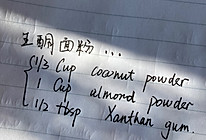 生酮面粉...
1/3 Cup coconut powder
1 Cup almond powder
1/2 tbsp Xanthan gum.